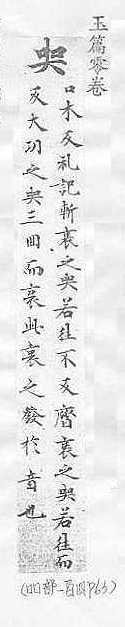 玉篇零卷
哭
口木反礼記斬衰之哭若往不反齊衰之哭若往而
反大功之哭三曲而哀此哀之發於音也
(吅部-百四 P63)